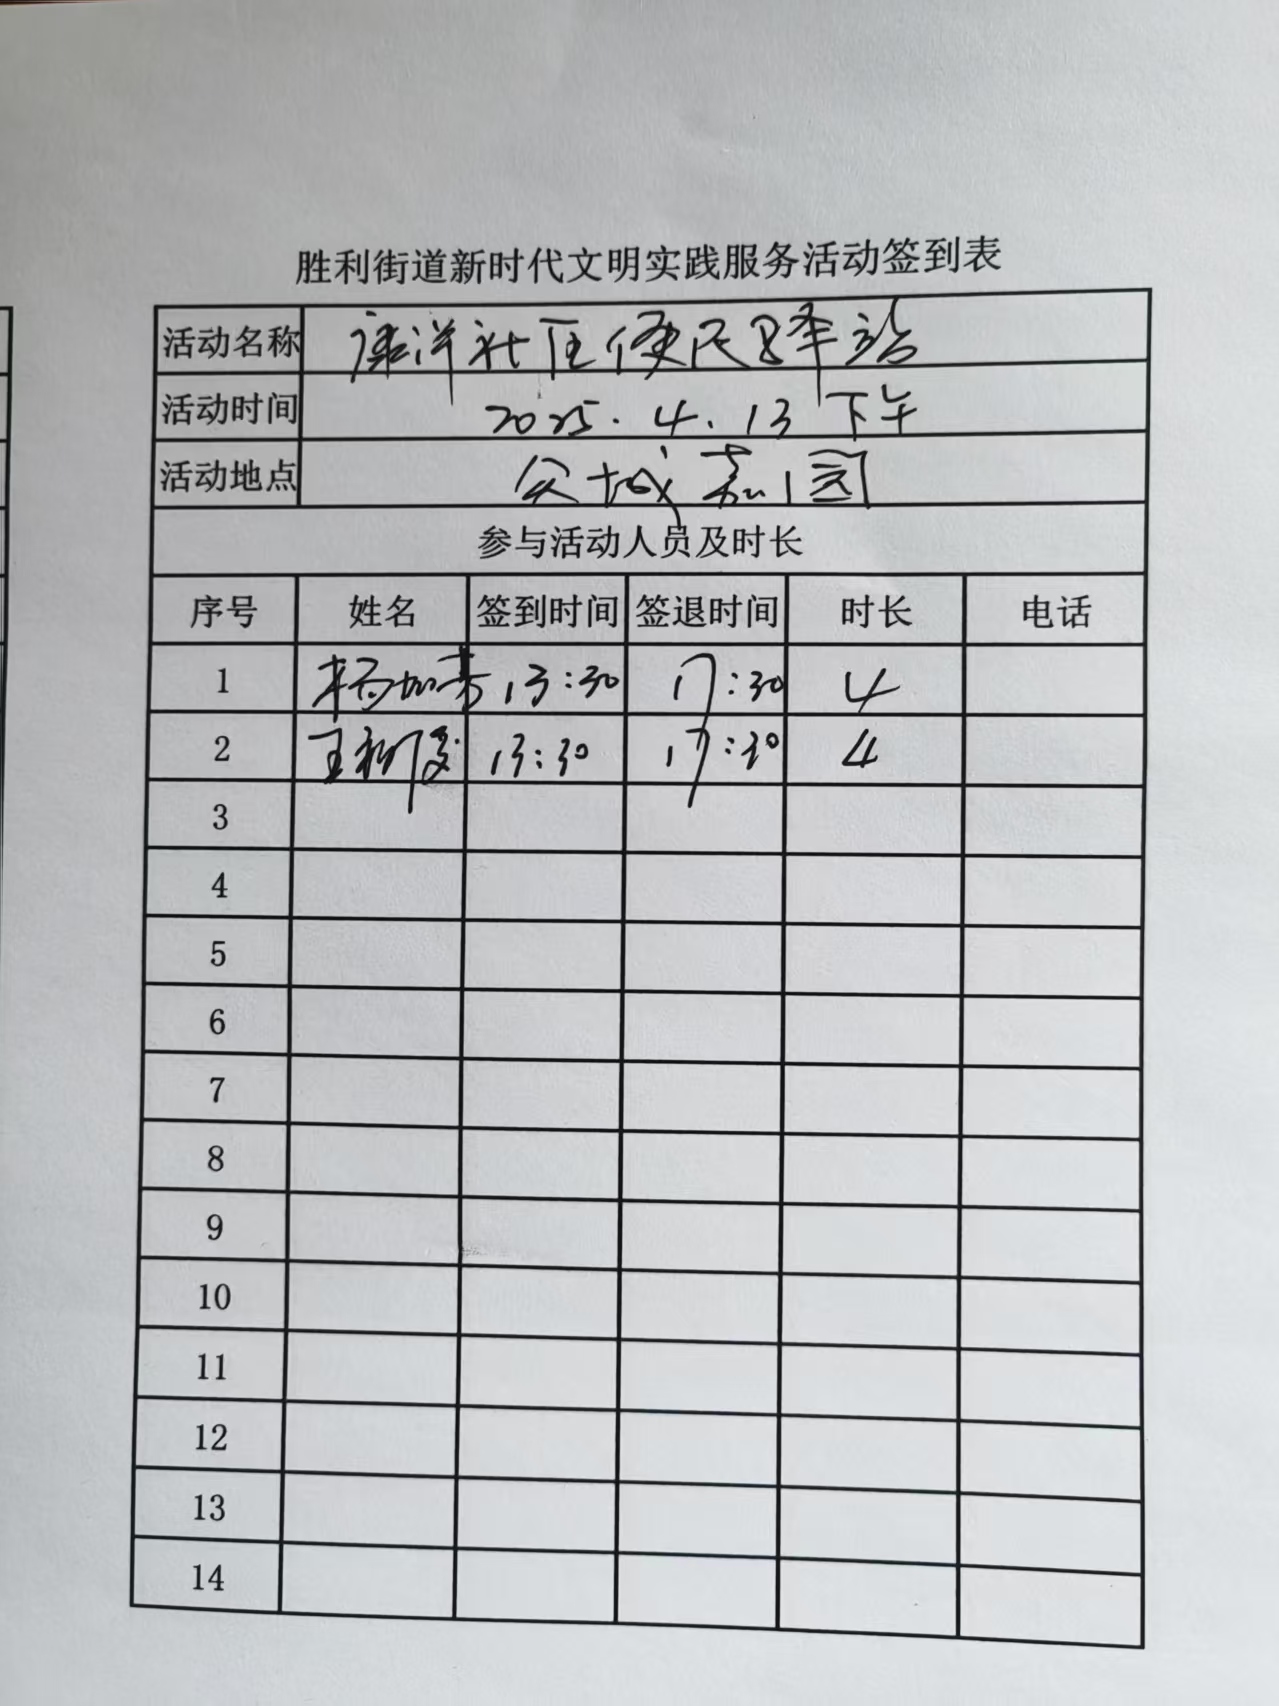 胜利街道新时代文明实践服务活动签到表
活动名称 康洋社区便民驿站
活动时间 2025.4.13 下午
活动地点 嘉园
参与活动人员及时长
序号 姓名 签到时间 签退时间 时长 电话
1 杨如 13:30 17:30 4
2 王 13:30 17:30 4
3
4
5
6
7
8
9
10
11
12
13
14